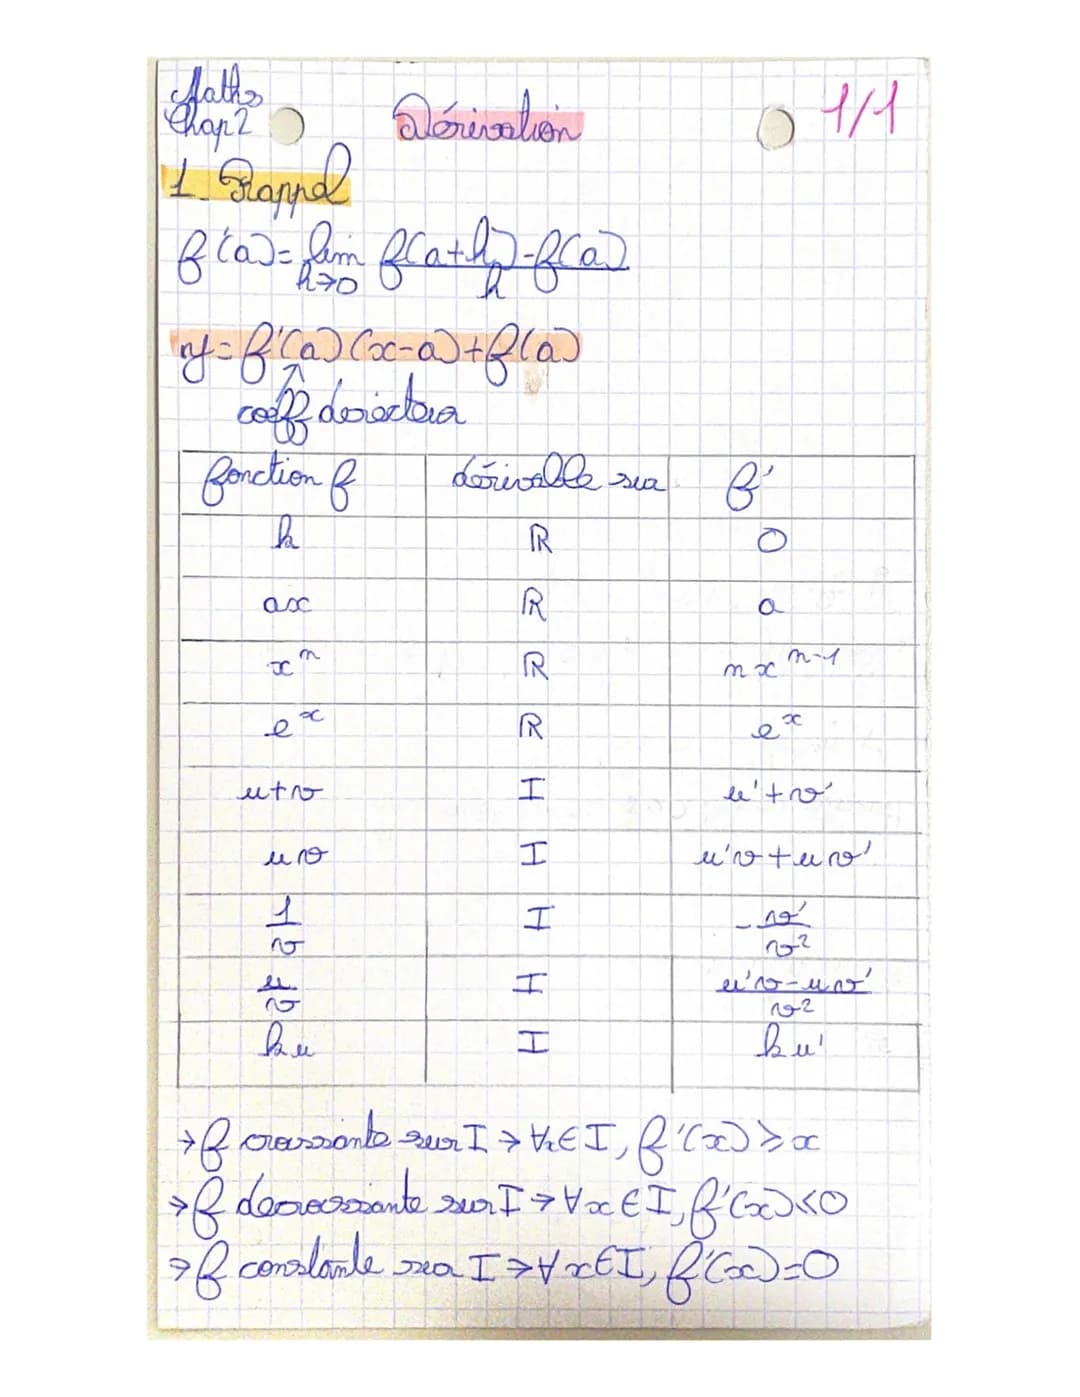 Maths
Chap 2
Dérivation
1/1
1. Rappel
f'(a) = lim h→0 f(a+h)-f(a) / h
y = f'(a)(x-a)+f(a)
↑
coeff directeur
fonction f | dérivable sur | f'
k | ℝ | 0
ax | ℝ | a
xⁿ | ℝ | nxⁿ⁻¹
eˣ | ℝ | eˣ
u+v | I | u'+v'
uv | I | u'v+uv'
1/v | I | -v'/v²
u/v | I | u'v-uv'/v²
ku | I | ku'
→ f croissante sur I → ∀x∈I, f'(x) ⩾ x
→ f decroissante sur I → ∀x∈I, f'(x)<0
→ f constante sur I → ∀x∈I, f'(x)=0